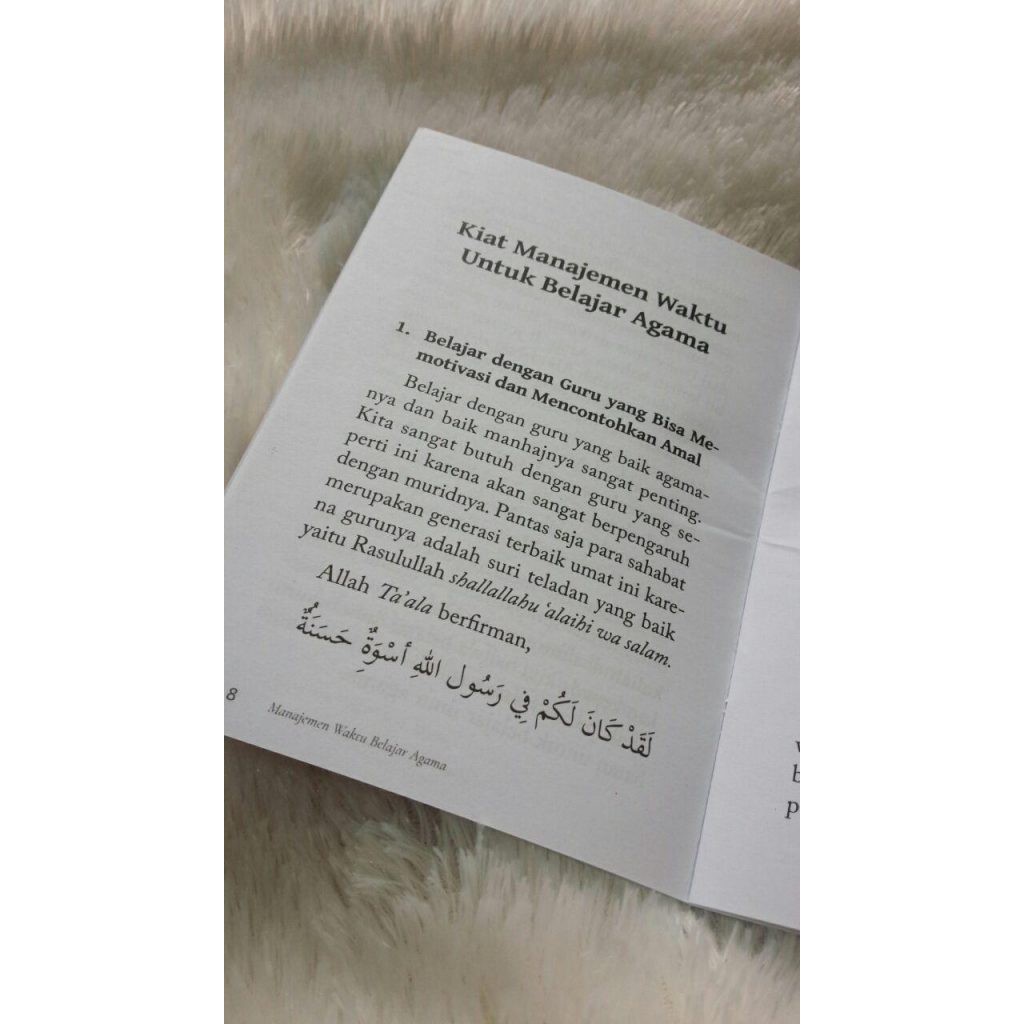 Kiat Manajemen Waktu
Untuk Belajar Agama
1. Belajar dengan Guru yang Bisa Me-
motivasi dan Mencontohkan Amal
Belajar dengan guru yang baik agama-
nya dan baik manhajnya sangat penting.
Kita sangat butuh dengan guru yang se-
perti ini karena akan sangat berpengaruh
dengan muridnya. Pantas saja para sahabat
merupakan generasi terbaik umat ini kare-
na gurunya adalah suri teladan yang baik
yaitu Rasulullah shallallahu ‘alaihi wa salam.
Allah Ta’ala berfirman,
لَقَدْ كَانَ لَكُمْ فِي رَسُولِ اللهِ أُسْوَةٌ حَسَنَةٌ
8
Manajemen Waktu Belajar Agama